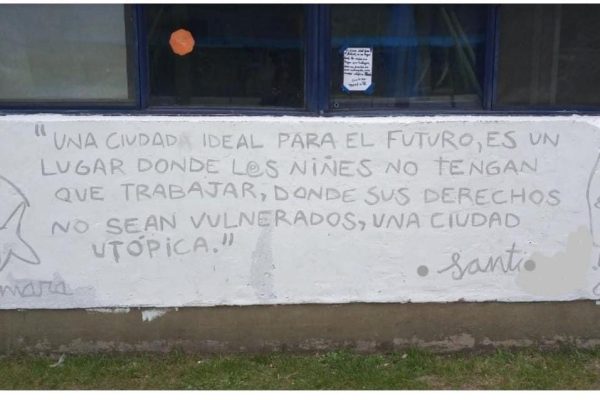 "UNA CIUDAD IDEAL PARA EL FUTURO, ES UN
LUGAR DONDE L@S NIÑES NO TENGAN
QUE TRABAJAR, DONDE SUS DERECHOS
NO SEAN VULNERADOS, UNA CIUDAD
UTÓPICA."
• Santi •
mara